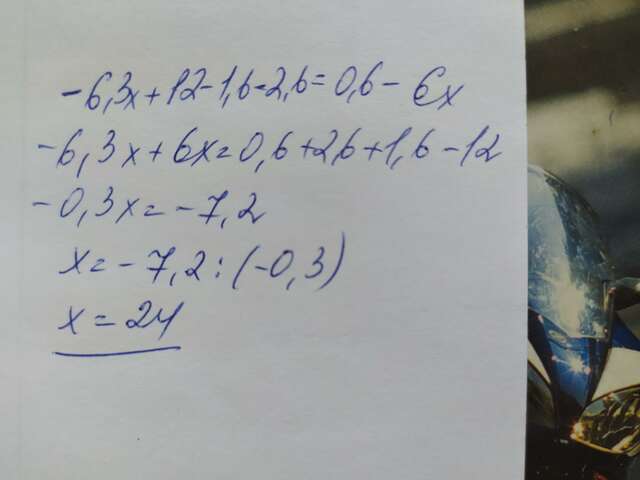 -6,3x+12-1,6-2,6=0,6-6x
-6,3x+6x=0,6+2,6+1,6-12
-0,3x=-7,2
x=-7,2:(-0,3)
x=24